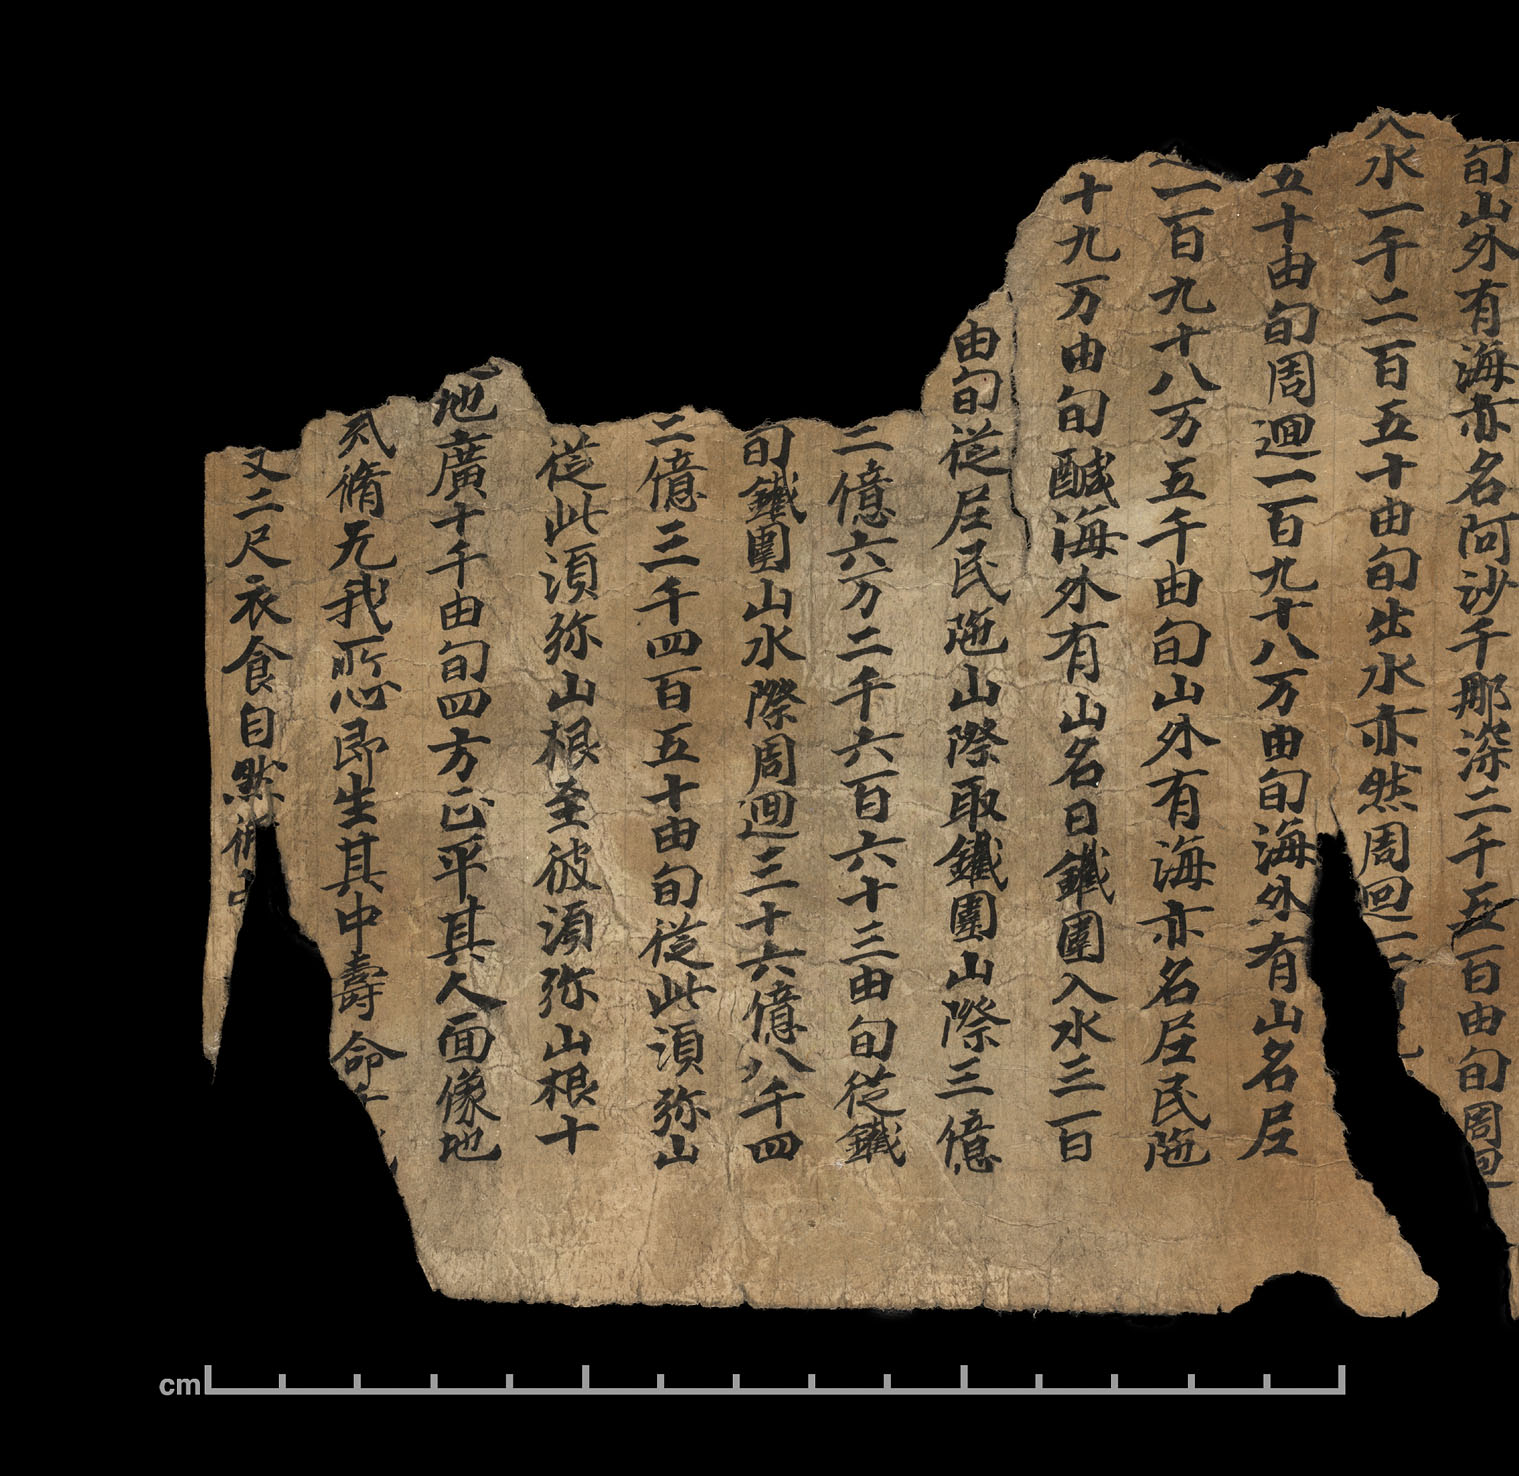 旬山外有海亦名阿沙千那深二千五百由旬周迴
水一千二百五十由旬出水亦然周回二
五十由旬周迴一百九十八万由旬海外有山名𡰱
一百九十八万五千由旬山外有海亦名𡰱民陁
十九万由旬醎海外有山名曰鐵圍入水三百
由旬從𡰱民陁山際取鐵圍山際三億
二億六万二千六百六十三由旬從鐵
旬鐵圍山水際周迴三十六億八千四
二億三千四百五十由旬從此湏弥山
從此湏弥山根至彼湏弥山根十
地廣十千由旬四方正平其人面像地
脩无我所心即生其中壽命
又二尺衣食自然